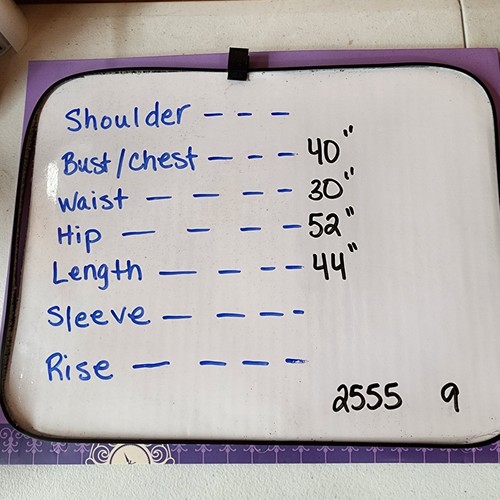 Shoulder - - -
Bust/Chest - - - 40"
Waist - - - - 30"
Hip - - - - 52"
Length - - - - 44"
Sleeve - - - -
Rise - - - -
2555 9